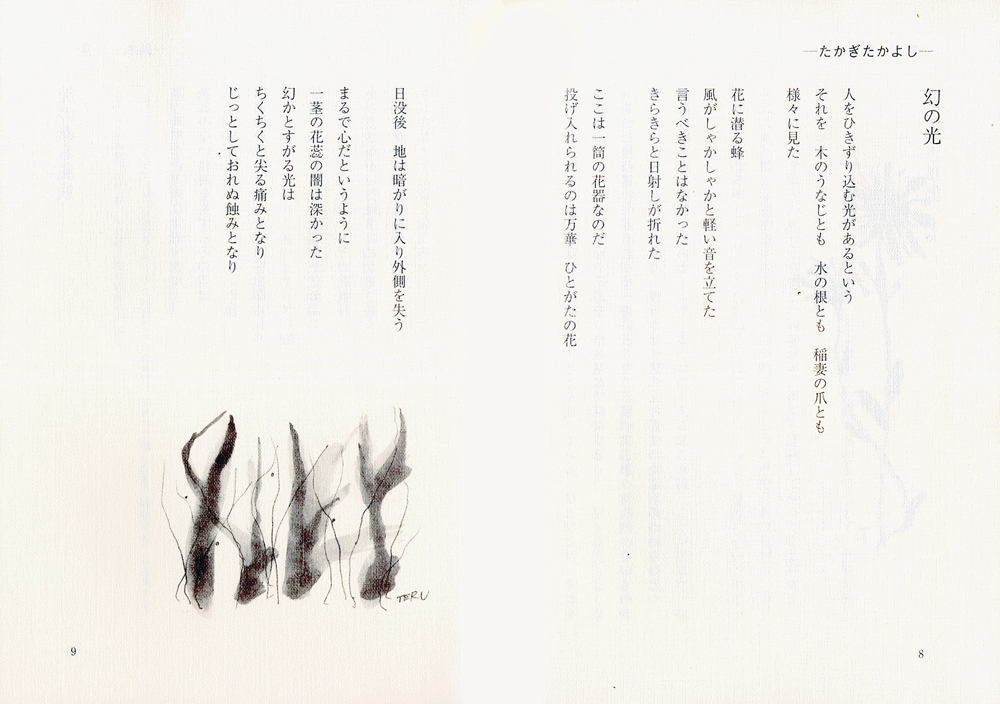 ―たかぎたかよし―
幻の光
人をひきずり込む光があるという
それを　木のうなじとも　水の根とも　稲妻の爪とも
様々に見た
花に潜る蜂
風がしゃかしゃかと軽い音を立てた
言うべきことはなかった
きらきらと日射しが折れた
ここは一筒の花器なのだ
投げ入れられるのは万華　ひとがたの花
8
日没後　地は暗がりに入り外側を失う
まるで心だというように
一茎の花蕊の闇は深かった
幻かとすがる光は
ちくちくと尖る痛みとなり
じっとしておれぬ蝕みとなり
TERU
9